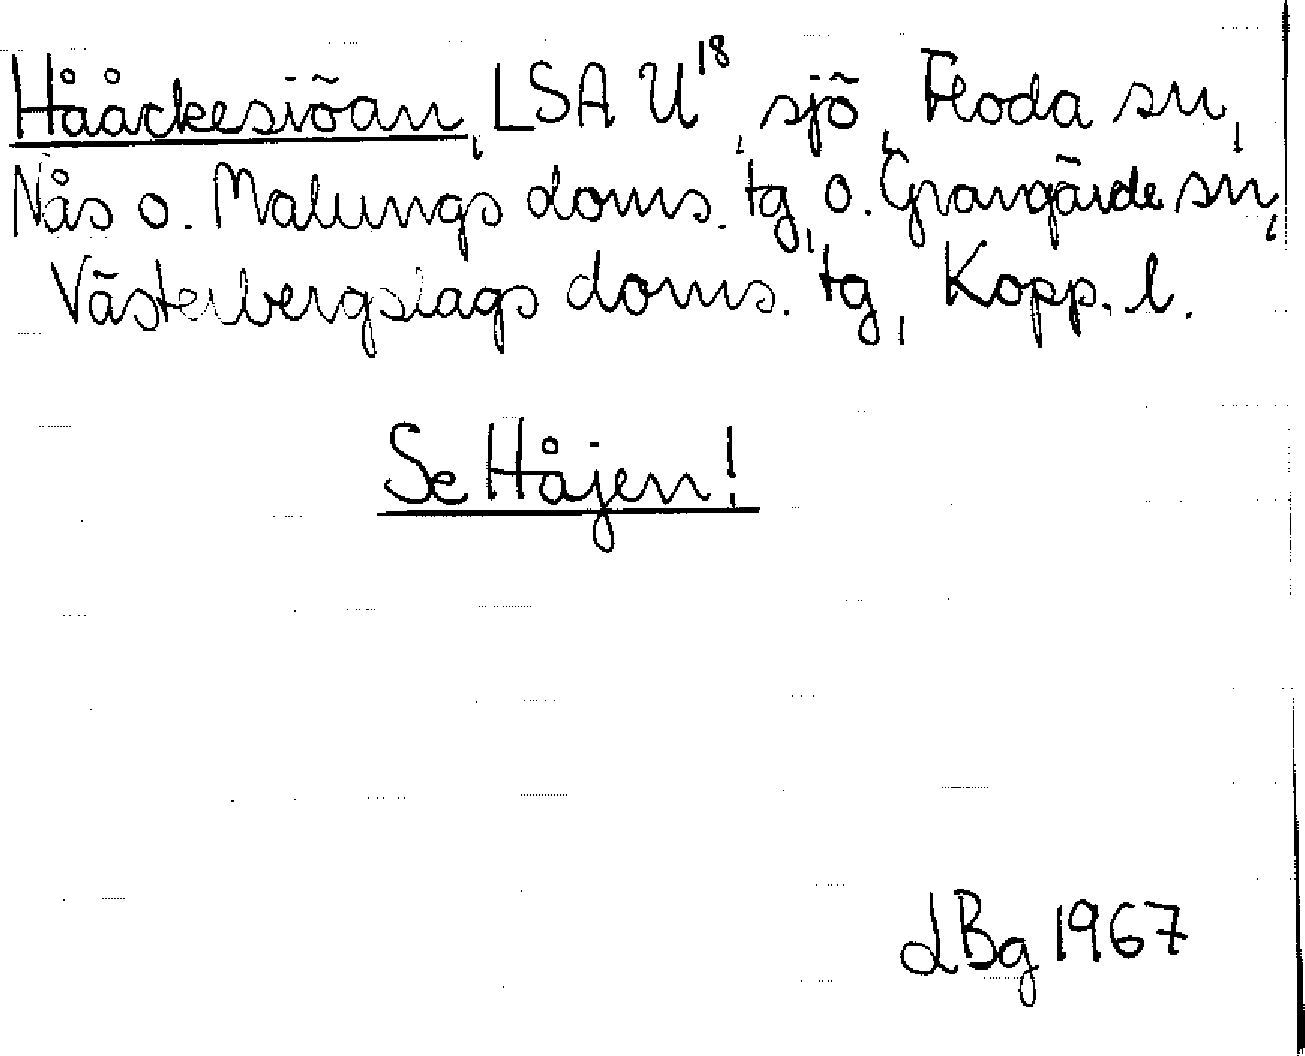 Hååckesiöan, LSA U18, sjö, Floda sn,
Nås o. Malungs doms. tg, o. Grangärde sn,
Västerbergslags doms. tg, Kopp. l.
Se Håjen!
LBg 1967